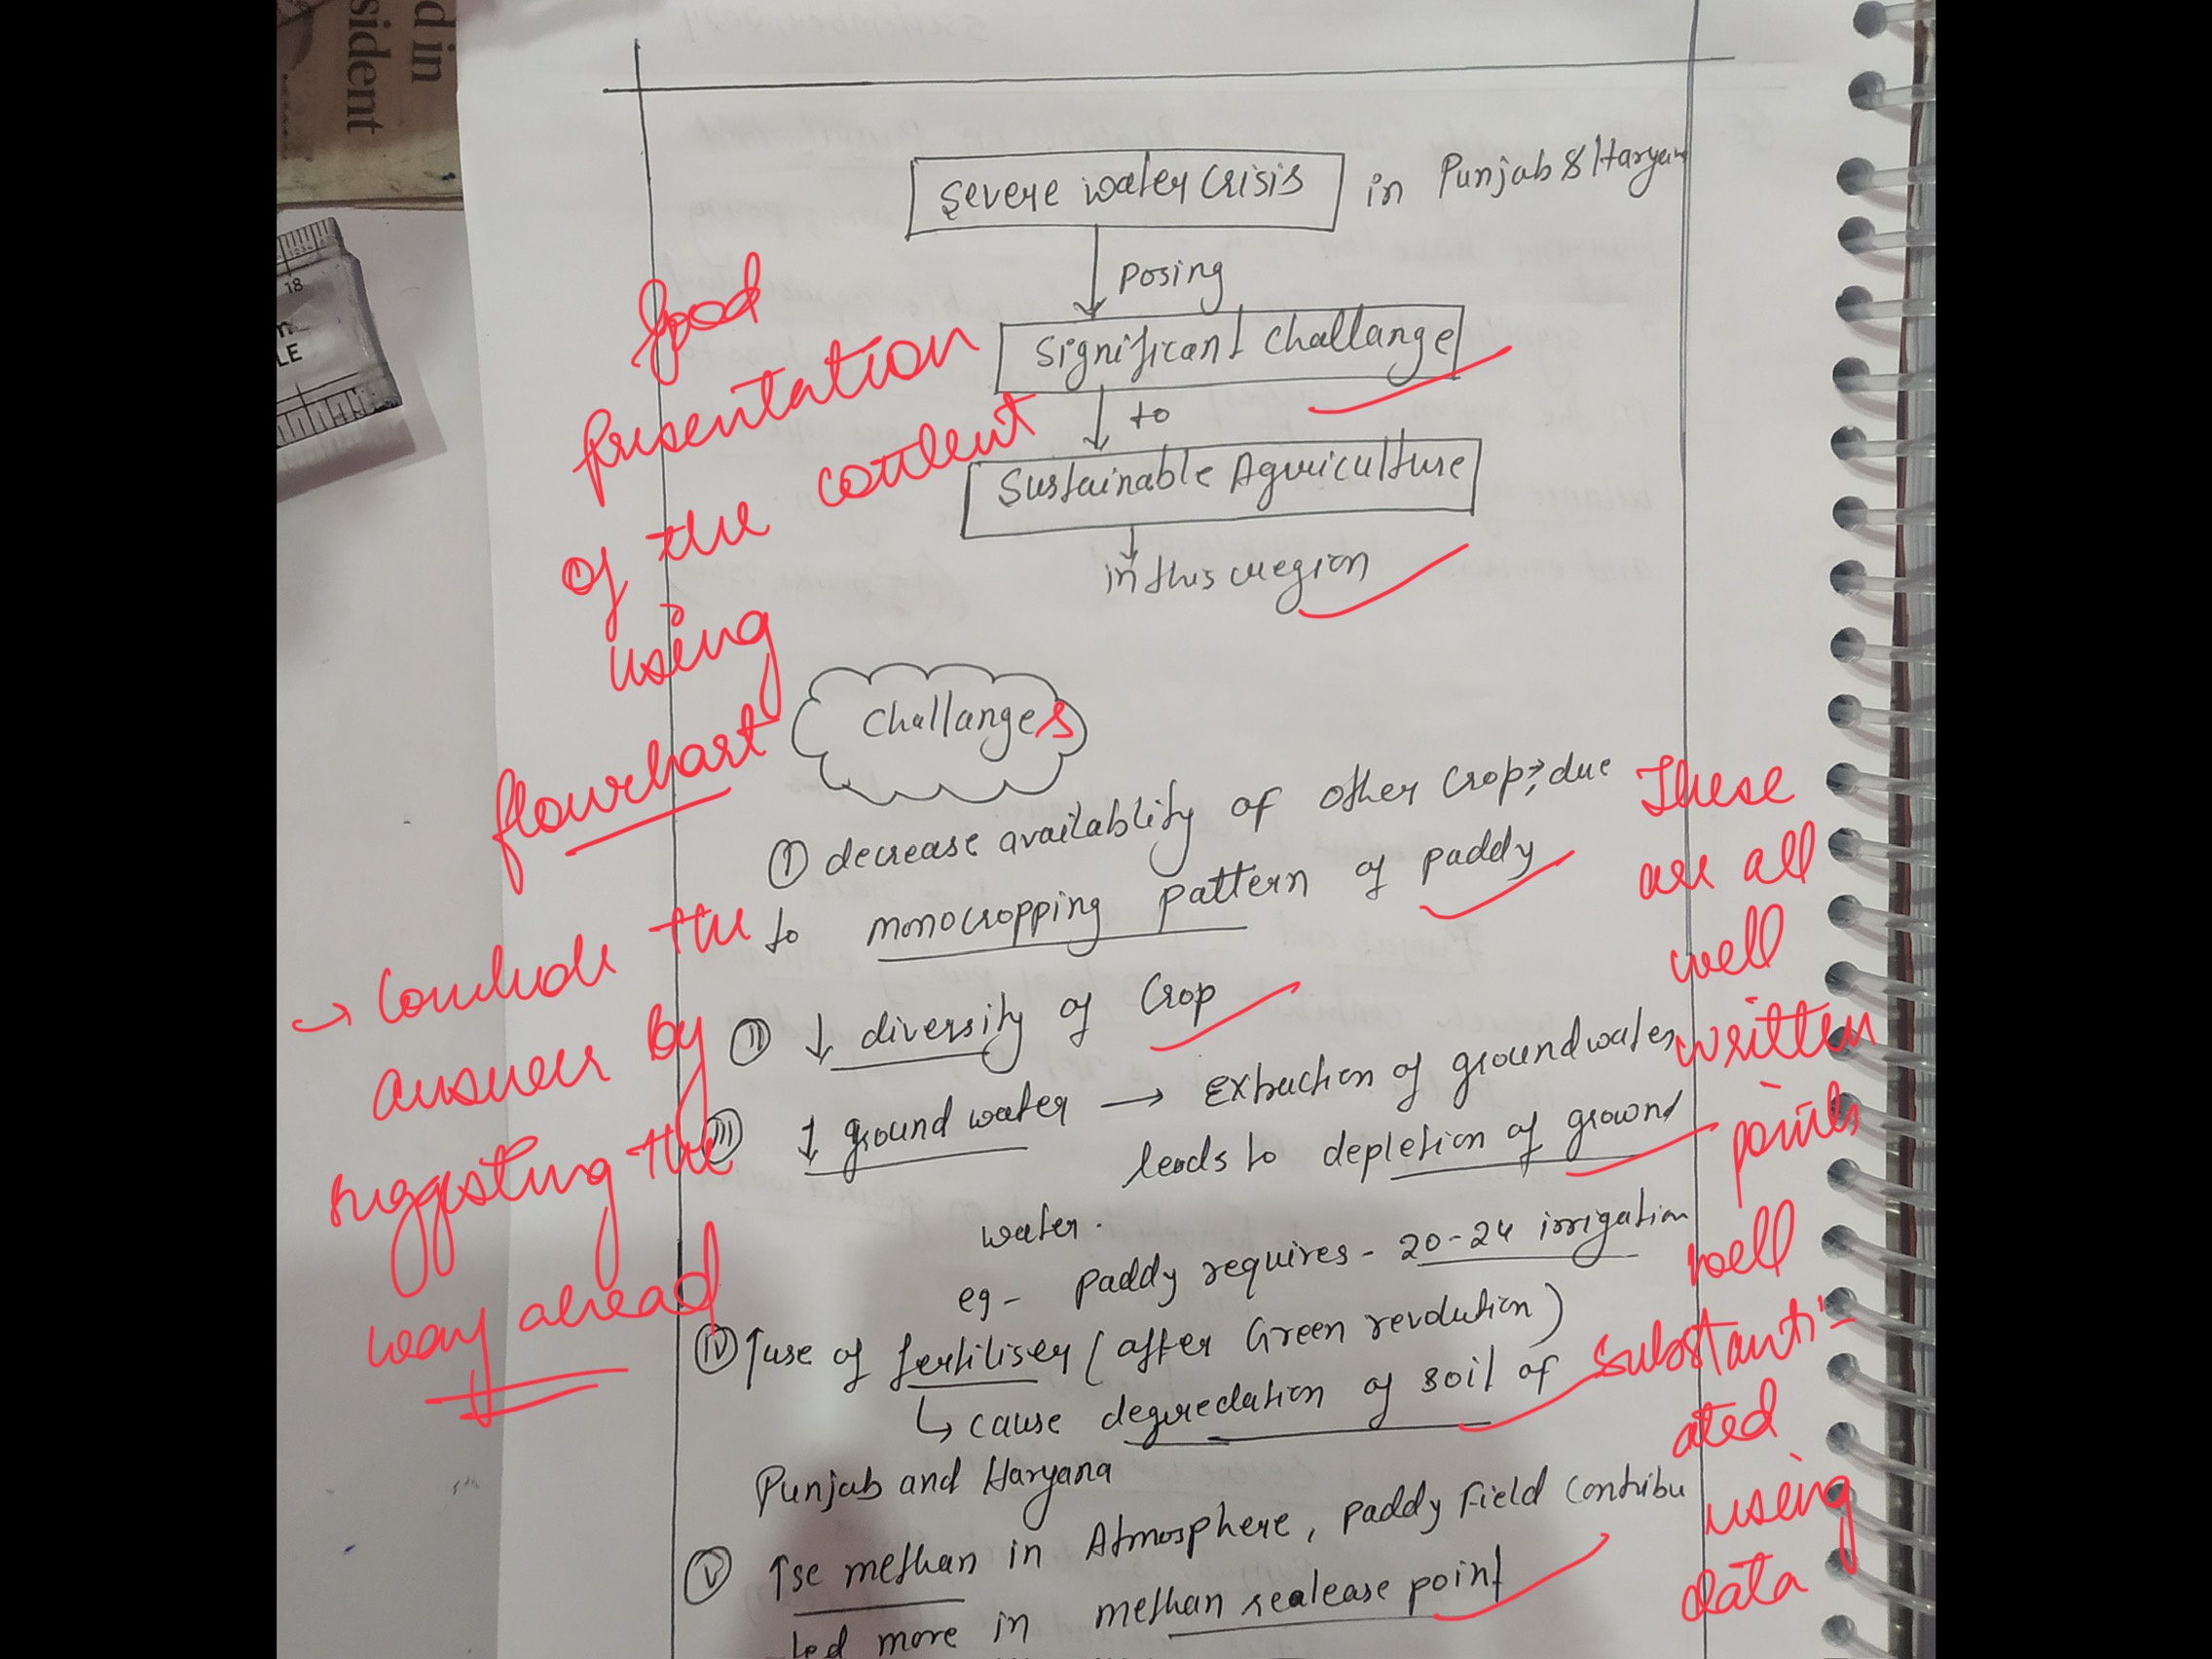 d in
sident
18
LE
Severe water Crisis in Punjab & Haryan
Posing
Significant Challange
to
Sustainable Agriculture
in this region
Good
presentation
of the content
using
flowchart
Challanges
(I) decrease availablity of other Crop, due
to monocropping pattern of paddy
(II) ↓ diversity of Crop
(III) ↓ ground water → Extraction of groundwater
leads to depletion of ground
water.
eg - Paddy requires - 20-24 irrigation
(IV) ↑use of fertiliser (after Green revolution)
↳ cause degredation of soil of
Punjab and Haryana
(V) ↑se methan in Atmosphere, Paddy Field Contribu
ted more in methan sealease point
→ Conclude the
answer by
suggesting the
way ahead
These
are all
well
written
points
well
substanti-
ated
using
data